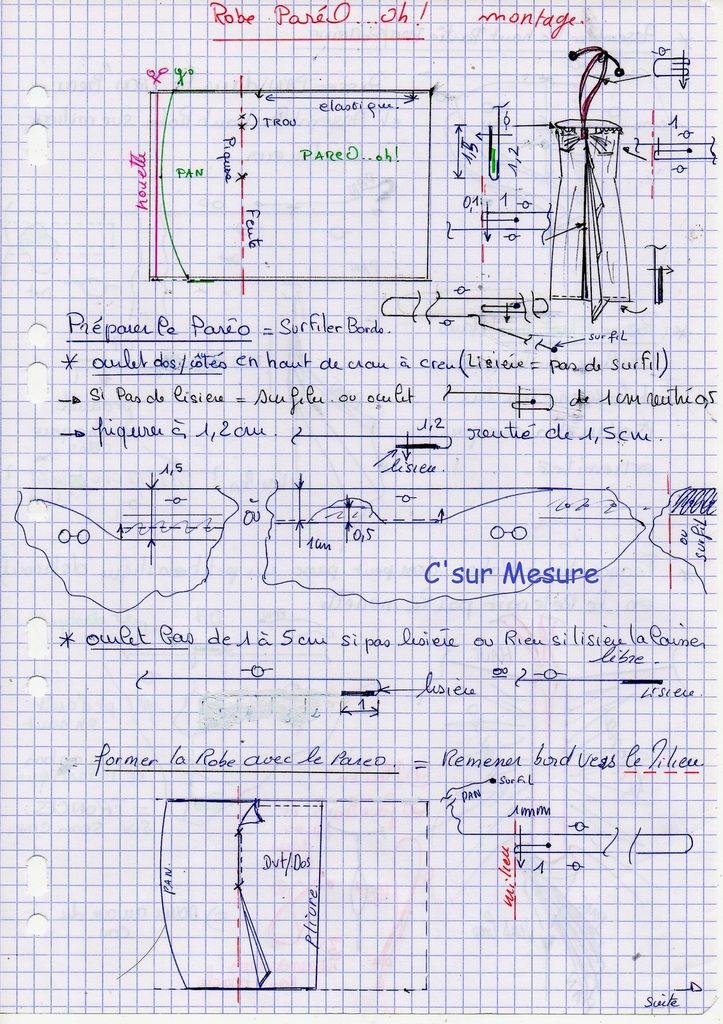 Robe ParéO...oh! montage.
élastique
TROU
PAREO...oh!
PAN
Piqure
nouette
Fente
1,5
1,2
1
0,1
1
Préparer le Paréo = Surfiler Bords.
surfil
* ourlet dos/côtés en haut de cran à cran (Lisière = pas de surfil)
→ Si Pas de lisière = surfiler ou ourlet de 1cm rentré 0,5
→ piqurer à 1,2cm. 1,2 rentré de 1,5cm.
lisière
1,5
ou
1cm
0,5
ou surfil
C'sur Mesure
* ourlet Bas de 1 à 5cm si pas lisière ou Rien si lisière la laisser libre.
lisière
1
ou
Lisière
former la Robe avec le Pareo. = Remener bord vers le Milieu
surfil
PAN
1mm
1
milieu
PAN
Dvt/Dos
Pliure
Suite →